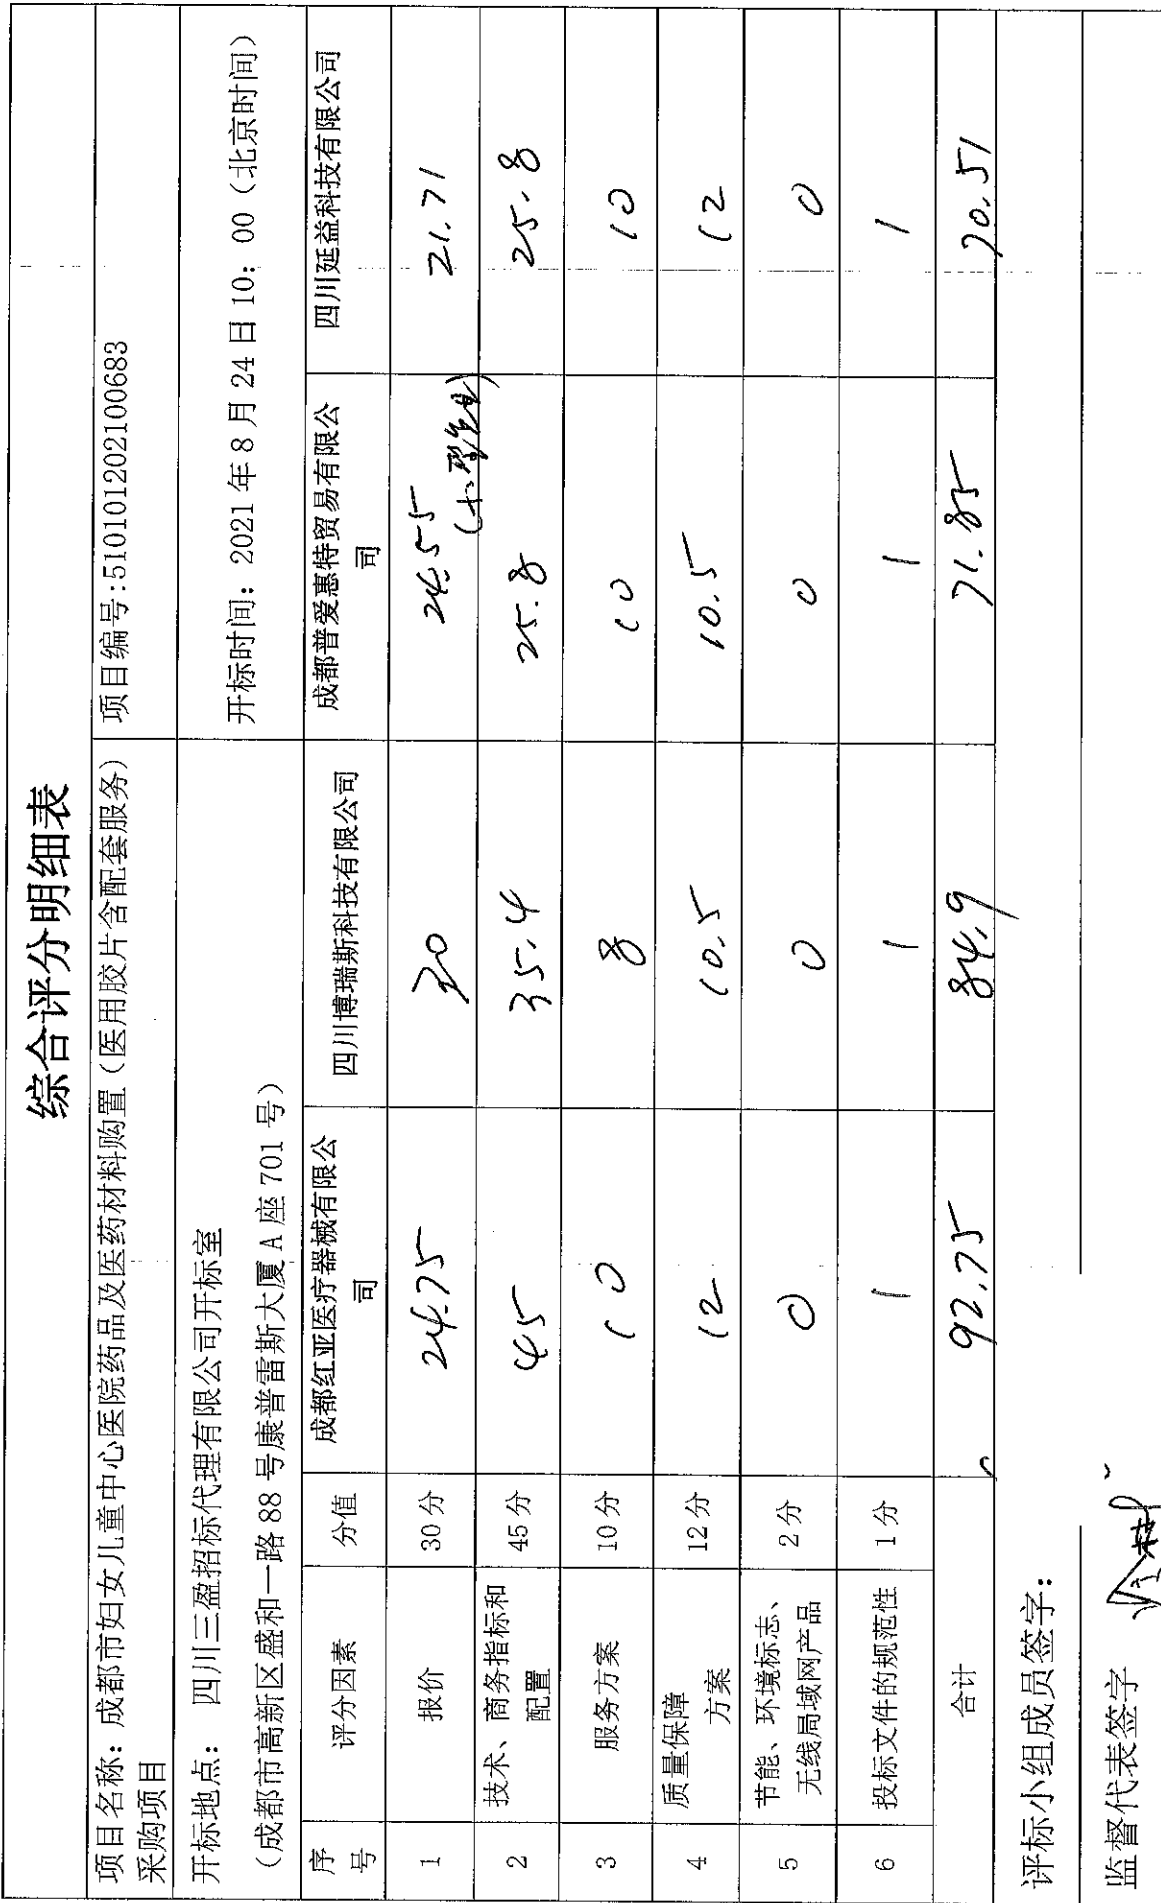 综合评分明细表
项目名称：成都市妇女儿童中心医院药品及医药材料购置（医用胶片含配套服务）
采购项目
项目编号:510101202100683
开标地点： 四川三盈招标代理有限公司开标室
（成都市高新区盛和一路 88 号康普雷斯大厦 A 座 701 号）
开标时间：2021 年 8 月 24 日 10：00（北京时间）
序号 评分因素 分值 成都红亚医疗器械有限公司 四川博瑞斯科技有限公司 成都普爱惠特贸易有限公司 四川延益科技有限公司
1 报价 30 分 24.75 30 24.55 21.71
2 技术、商务指标和配置 45 分 45 35.4 25.8 25.8
3 服务方案 10 分 10 8 10 10
4 质量保障方案 12 分 12 10.5 10.5 12
5 节能、环境标志、无线局域网产品 2 分 0 0 0 0
6 投标文件的规范性 1 分 1 1 1 1
合计 92.75 84.9 71.85 70.51
评标小组成员签字：
监督代表签字